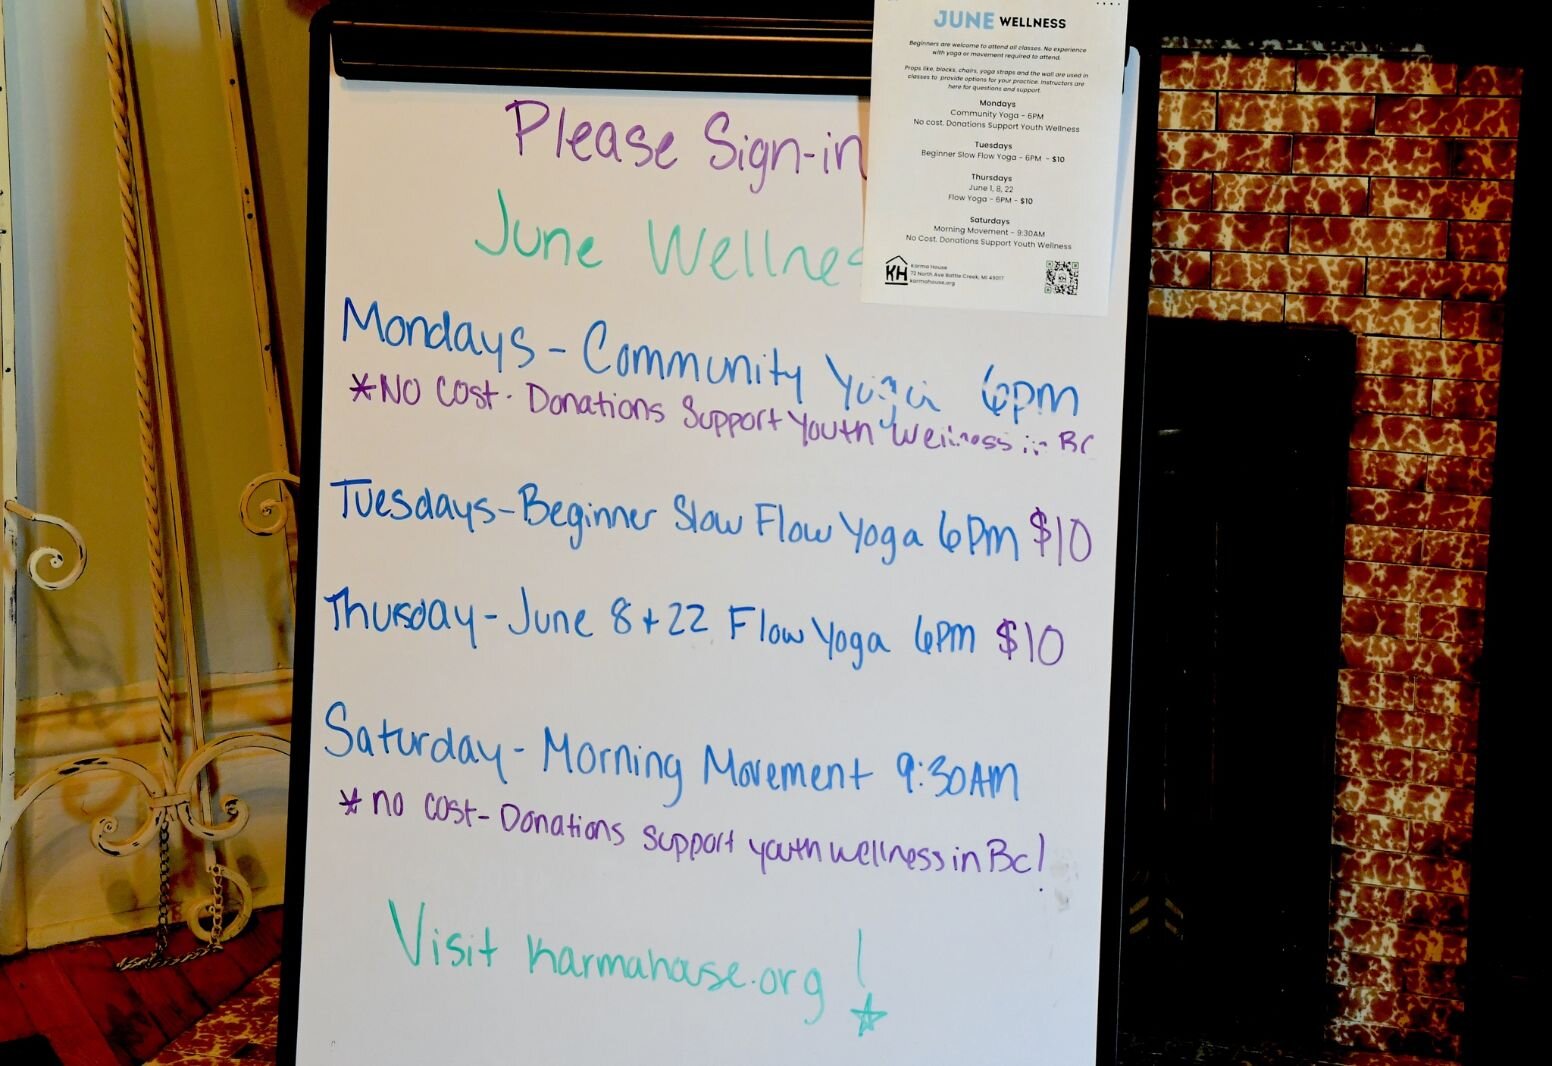 Please Sign-in
June Wellnes
Mondays - Community Yoga 6pm
*NO COST. Donations Support Youth Wellness in BC
Tuesdays - Beginner Slow Flow Yoga 6pm $10
Thursday - June 8 + 22 Flow Yoga 6pm $10
Saturday - Morning Movement 9:30AM
* no cost - Donations support youth wellness in BC!
Visit karmahouse.org!
JUNE WELLNESS
Beginners are welcome to attend all classes. No experience
with yoga or movement required to attend.
Props like, blocks, chairs, yoga straps and the wall are used in
classes to provide options for your practice. Instructors are
here for questions and support.
Mondays
Community Yoga - 6PM
No cost. Donations Support Youth Wellness
Tuesdays
Beginner Slow Flow Yoga - 6PM - $10
Thursdays
June 1, 8, 22
Flow Yoga - 6PM - $10
Saturdays
Morning Movement - 9:30AM
No Cost. Donations Support Youth Wellness
KH
Karma House
72 North Ave Battle Creek, MI 49017
karmahouse.org